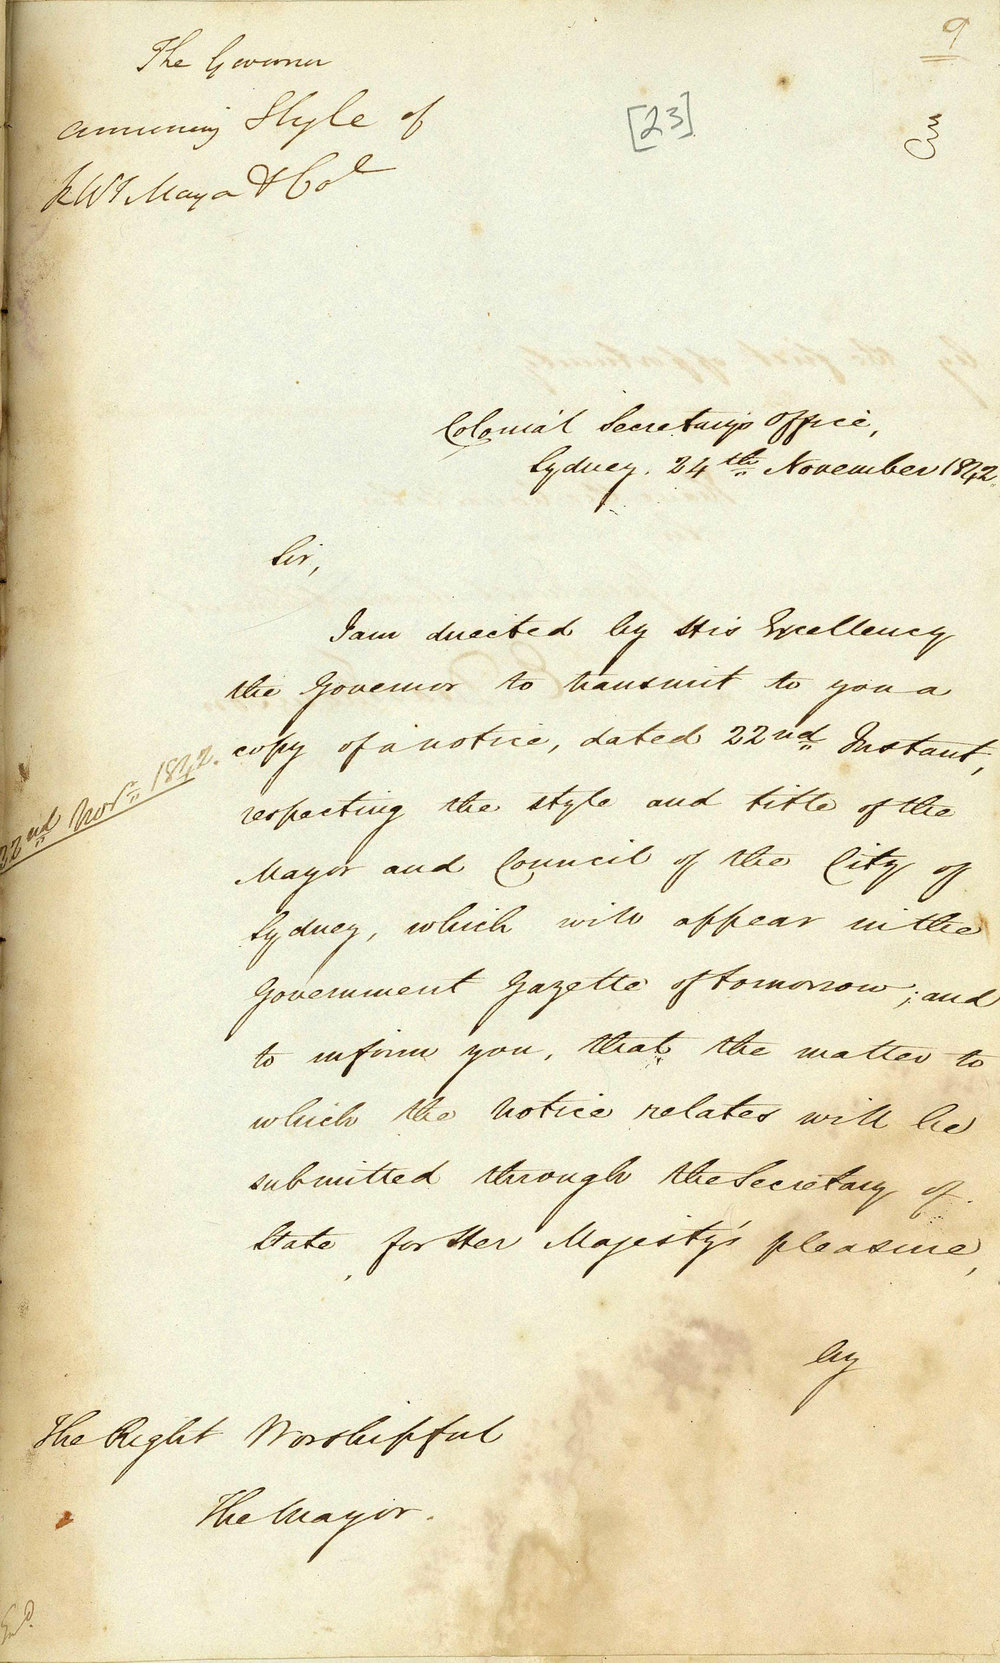 9
The Governor
announcing Style of
Rt. Wl. Mayor & Col
[23]
Colonial Secretary's Office,
Sydney. 24th November 1842.
Sir,
I am directed by His Excellency
the Governor to transmit to you a
copy of a notice, dated 22nd Instant,
22nd Novr. 1842.
respecting the style and title of the
Mayor and Council of the City of
Sydney, which will appear in the
Government Gazette of tomorrow; and
to inform you, that the matter to
which the notice relates will be
submitted through the Secretary of
State, for Her Majesty's pleasure,
by
The Right Worshipful
The Mayor.